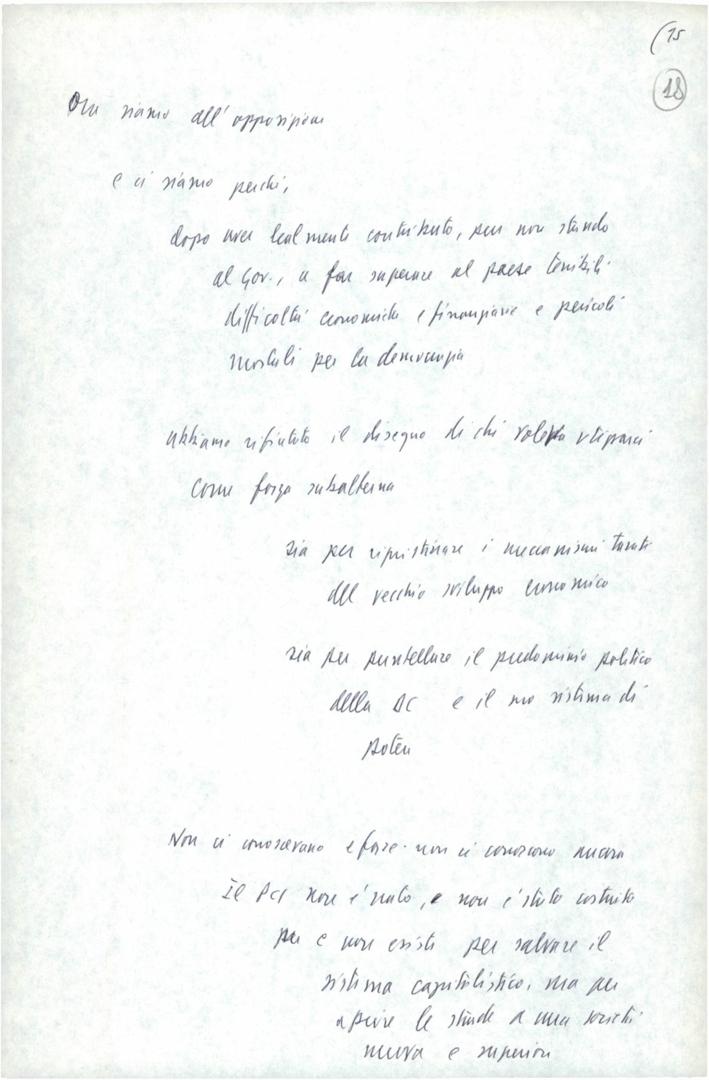 (15
18
Ora siamo all'opposizione
e ci siamo perché,
dopo aver lealmente contribuito, pur non stando
al Gov., a far superare al paese terribili
difficoltà economiche e finanziarie e pericoli
mortali per la democrazia
abbiamo rifiutato il disegno di chi voleva
come forza subalterna
sia per ripristinare i meccanismi
del vecchio sviluppo economico
sia per puntellare il predominio politico
della DC e il suo sistema di
potere
Non ci conoscevano e forse non ci conoscono ancora
Il PCI non è nato, e non è stato costruito
e non esiste per salvare il
sistema capitalistico, ma per
aprire le strade a una società
nuova e superiore